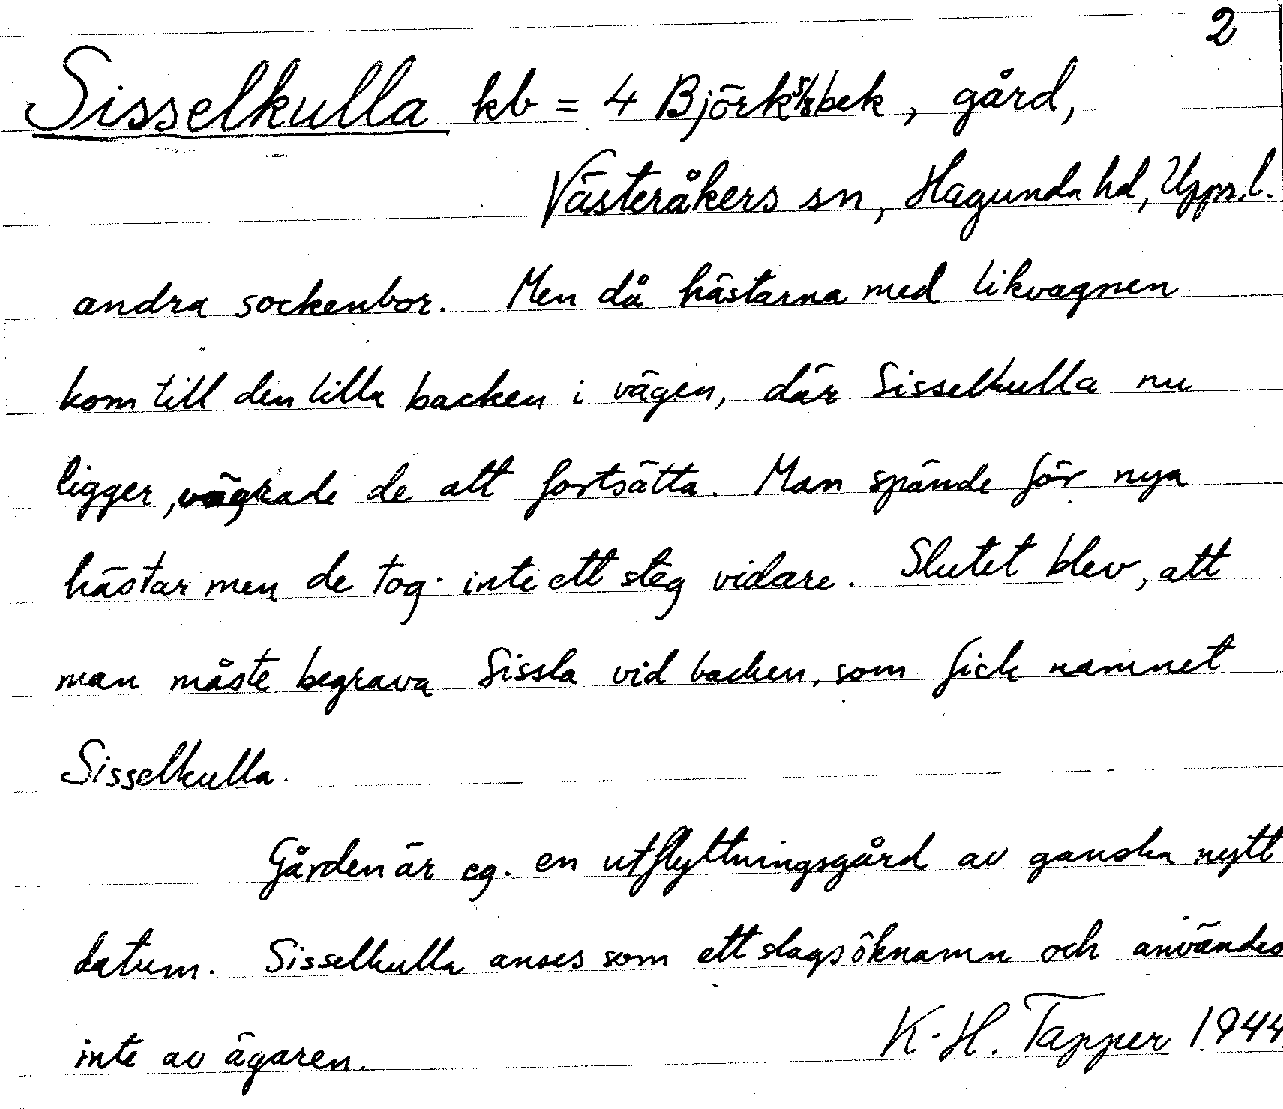 2
Sisselkulla kb = 4 Björks/rbek, gård,
Västeråkers sn, Hagunda hd, Uppl.
andra sockenbor. Men då hästarna med likvagnen
kom till den lilla backen i vägen, där Sisselkulla nu
ligger, vägrade de att fortsätta. Man spände för nya
hästar men de tog inte ett steg vidare. Slutet blev, att
man måste begrava Sissla vid backen, som fick namnet
Sisselkulla.
Gården är eg. en utflyttningsgård av ganska nytt
datum. Sisselkulla anses som ett slags öknamn och användes
inte av ägaren.
K.-H. Tapper 1944